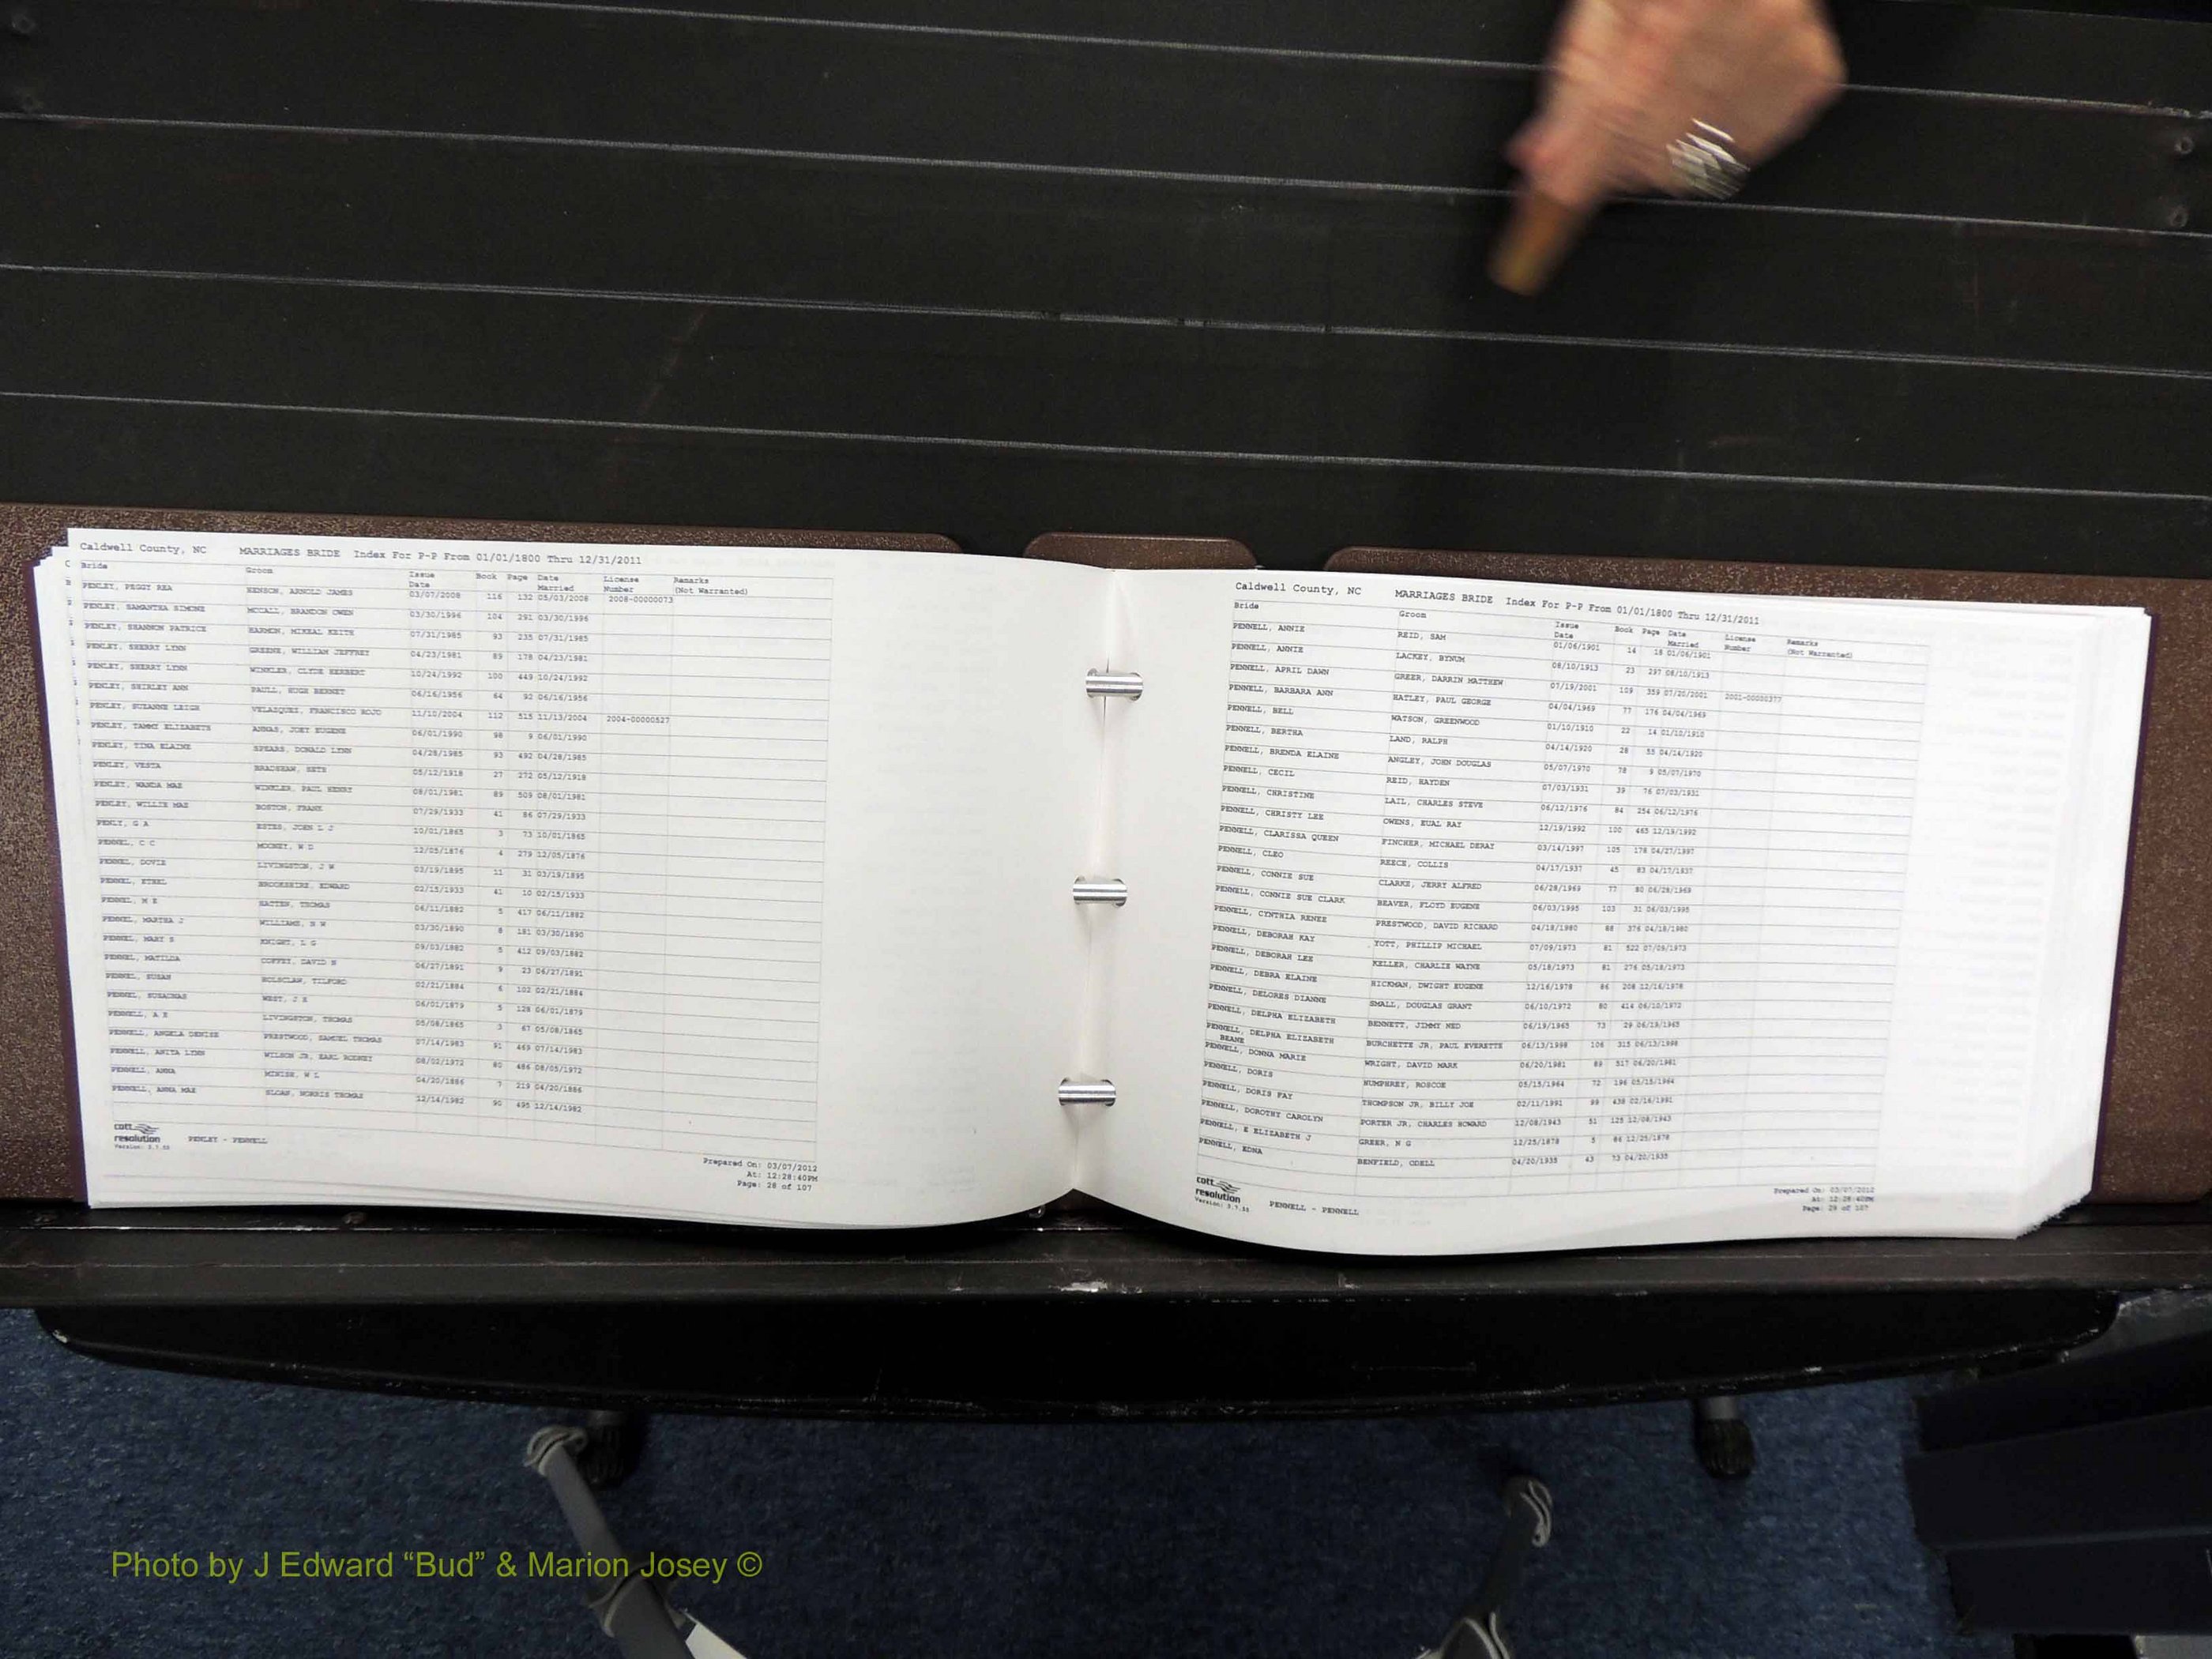 Caldwell County, NC MARRIAGES BRIDE Index For P-P From 01/01/1800 Thru 12/31/2011
Bride Groom Issue Date Book Page Date Married License Number Remarks (Not Warranted)
PENLEY, PEGGY REA HENSON, ARNOLD JAMES 03/07/2008 116 132 05/03/2008 2008-00000073
PENLEY, SAMANTHA SIMONE MCCALL, BRANDON OWEN 03/30/1996 104 291 03/30/1996
PENLEY, SHANNON PATRICE HARMON, MIKEAL KEITH 07/31/1985 93 235 07/31/1985
PENLEY, SHERRY LYNN GREENE, WILLIAM JEFFREY 04/23/1981 89 178 04/23/1981
PENLEY, SHERRY LYNN WINKLER, CLYDE HERBERT 10/24/1992 100 449 10/24/1992
PENLEY, SHIRLEY ANN PAULL, HUGH BERNET 06/16/1956 64 92 06/16/1956
PENLEY, SUZANNE LEIGH VELAZQUEZ, FRANCISCO ROJO 11/10/2004 112 515 11/13/2004 2004-00000527
PENLEY, TAMMY ELIZABETH ANNAS, JOEY EUGENE 06/01/1990 98 9 06/01/1990
PENLEY, TINA ELAINE SPEARS, DONALD LYNN 04/28/1985 93 492 04/28/1985
PENLEY, VESTA BRADSHAW, SETH 05/12/1918 27 272 05/12/1918
PENLEY, WANDA MAE WINKLER, PAUL HENRY 08/01/1981 89 509 08/01/1981
PENLEY, WILLIE MAE BOSTON, FRANK 07/29/1933 41 86 07/29/1933
PENLY, G A ESTES, JOHN L J 10/01/1865 3 73 10/01/1865
PENNEL, C C MOONEY, W D 12/05/1876 4 279 12/05/1876
PENNEL, DOVIE LIVINGSTON, J W 03/19/1895 11 31 03/19/1895
PENNEL, ETHEL BROOKSHIRE, EDWARD 02/15/1933 41 10 02/15/1933
PENNEL, M E HATTEN, THOMAS 06/11/1882 5 417 06/11/1882
PENNEL, MARTHA J WILLIAMS, B W 03/30/1890 8 181 03/30/1890
PENNEL, MARY S KNIGHT, L G 09/03/1882 5 412 09/03/1882
PENNEL, MATILDA COFFEY, DAVID N 06/27/1891 9 23 06/27/1891
PENNEL, SUSAN HOLSCLAW, TILFORD 02/21/1884 6 102 02/21/1884
PENNEL, SUSANNAH WEST, J E 06/01/1879 5 128 06/01/1879
PENNELL, A E LIVINGSTON, THOMAS 05/08/1865 3 67 05/08/1865
PENNELL, ANGELA DENISE PRESTWOOD, SAMUEL THOMAS 07/14/1983 91 469 07/14/1983
PENNELL, ANITA LYNN WILSON JR, EARL RODNEY 08/02/1972 80 486 08/05/1972
PENNELL, ANNA MINISH, W L 04/20/1886 7 219 04/20/1886
PENNELL, ANNA MAE SLOAN, NORRIS THOMAS 12/14/1982 90 495 12/14/1982
cott resolution
Version: 3.7.33 PENLEY - PENNELL
Prepared On: 03/07/2012
At: 12:28:40PM
Page: 28 of 107
Caldwell County, NC MARRIAGES BRIDE Index For P-P From 01/01/1800 Thru 12/31/2011
Bride Groom Issue Date Book Page Date Married License Number Remarks (Not Warranted)
PENNELL, ANNIE REID, SAM 01/06/1901 14 18 01/06/1901
PENNELL, ANNIE LACKEY, BYNUM 08/10/1913 23 297 08/10/1913
PENNELL, APRIL DAWN GREER, DARRIN MATTHEW 07/19/2001 109 359 07/20/2001 2001-00000377
PENNELL, BARBARA ANN HATLEY, PAUL GEORGE 04/04/1969 77 176 04/04/1969
PENNELL, BELL WATSON, GREENWOOD 01/10/1910 22 14 01/10/1910
PENNELL, BERTHA LAND, RALPH 04/14/1920 28 55 04/14/1920
PENNELL, BRENDA ELAINE ANGLEY, JOHN DOUGLAS 05/07/1970 78 9 05/07/1970
PENNELL, CECIL REID, HAYDEN 07/03/1931 39 76 07/03/1931
PENNELL, CHRISTINE LAIL, CHARLES STEVE 06/12/1976 84 254 06/12/1976
PENNELL, CHRISTY LEE OWENS, EUAL RAY 12/19/1992 100 465 12/19/1992
PENNELL, CLARISSA QUEEN FINCHER, MICHAEL DERAY 03/14/1997 105 178 04/27/1997
PENNELL, CLEO REECE, COLLIS 04/17/1937 45 83 04/17/1937
PENNELL, CONNIE SUE CLARKE, JERRY ALFRED 06/28/1969 77 80 06/28/1969
PENNELL, CONNIE SUE CLARK BEAVER, FLOYD EUGENE 06/03/1995 103 31 06/03/1995
PENNELL, CYNTHIA RENEE PRESTWOOD, DAVID RICHARD 04/18/1980 88 376 04/18/1980
PENNELL, DEBORAH KAY YOTT, PHILLIP MICHAEL 07/09/1973 81 522 07/09/1973
PENNELL, DEBORAH LEE KELLER, CHARLIE WAYNE 05/18/1973 81 276 05/18/1973
PENNELL, DEBRA ELAINE HICKMAN, DWIGHT EUGENE 12/16/1978 86 208 12/16/1978
PENNELL, DELORES DIANNE SMALL, DOUGLAS GRANT 06/10/1972 80 414 06/10/1972
PENNELL, DELPHA ELIZABETH BENNETT, JIMMY NED 06/19/1965 73 29 06/19/1965
PENNELL, DELPHA ELIZABETH BEANE BURCHETTE JR, PAUL EVERETTE 06/13/1998 106 315 06/13/1998
PENNELL, DONNA MARIE WRIGHT, DAVID MARK 06/20/1981 89 517 06/20/1981
PENNELL, DORIS HUMPHREY, ROSCOE 05/15/1964 72 196 05/15/1964
PENNELL, DORIS FAY THOMPSON JR, BILLY JOE 02/11/1991 99 438 02/16/1991
PENNELL, DOROTHY CAROLYN PORTER JR, CHARLES HOWARD 12/08/1943 51 125 12/08/1943
PENNELL, E ELIZABETH J GREER, N G 12/25/1878 5 86 12/25/1878
PENNELL, EDNA BENFIELD, ODELL 04/20/1935 43 73 04/20/1935
cott resolution
Version: 3.7.33 PENNELL - PENNELL
Prepared On: 03/07/2012
At: 12:28:40PM
Page: 29 of 107
Photo by J Edward “Bud” & Marion Josey ©